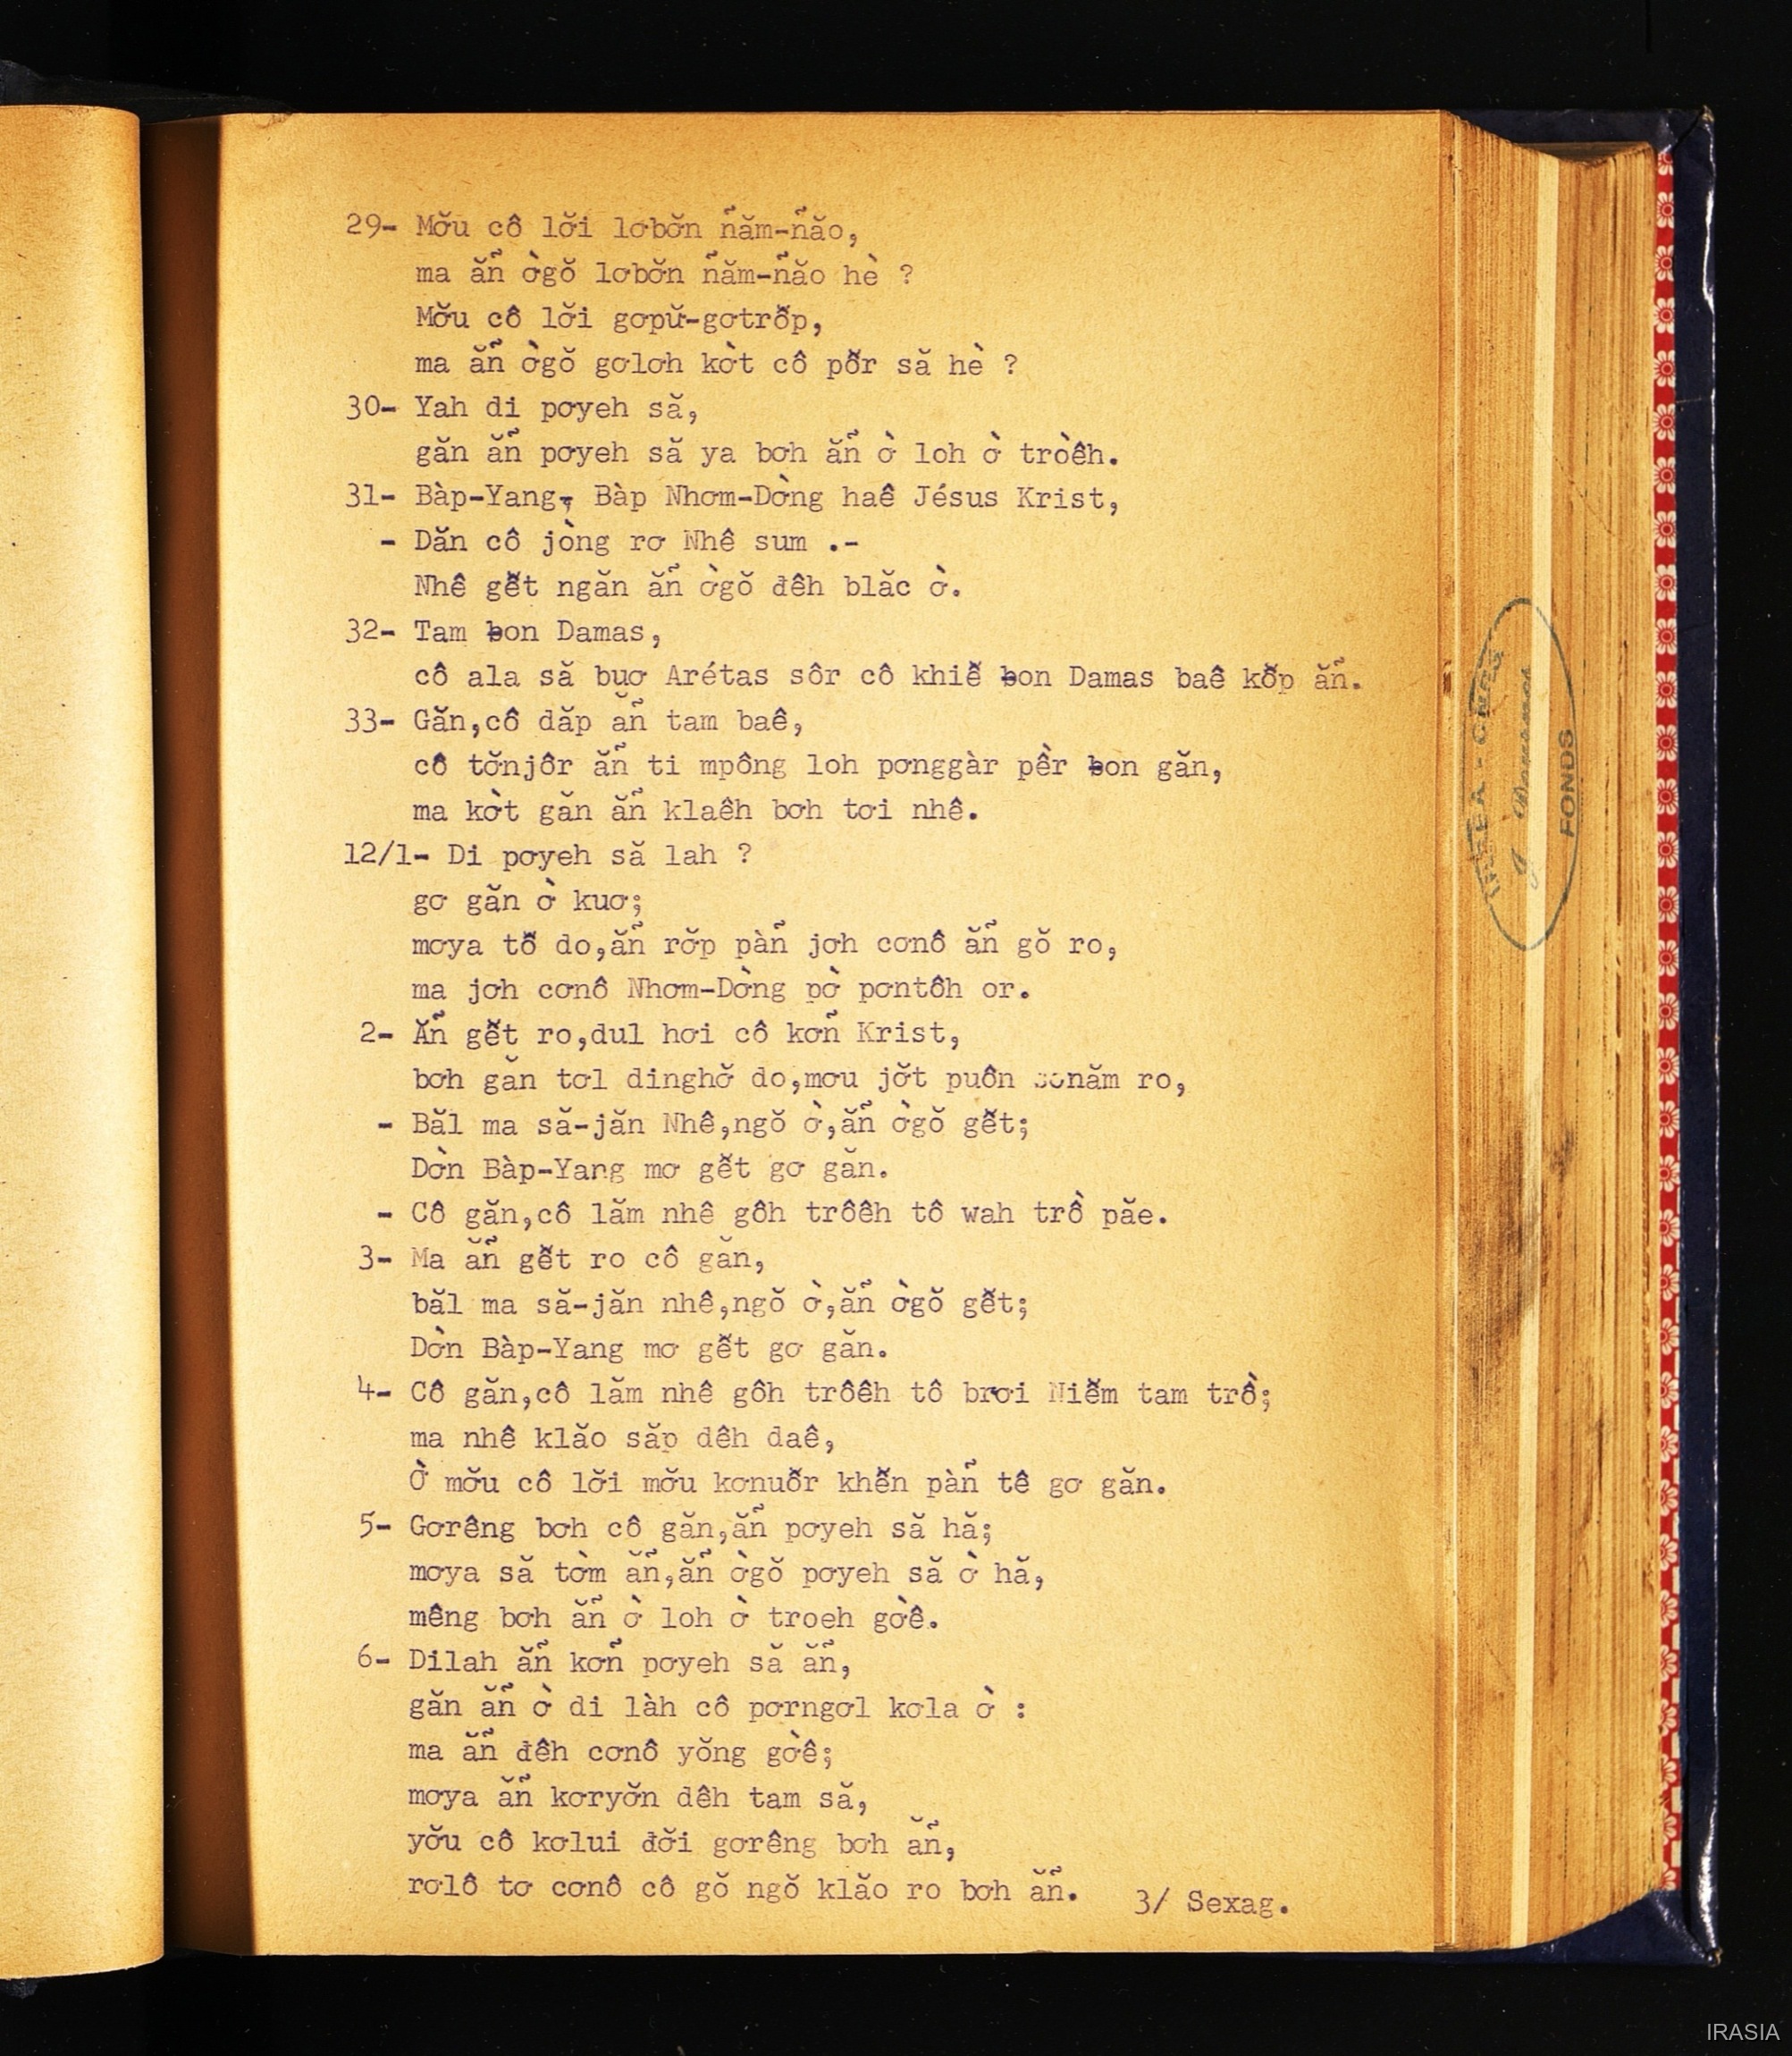 29- Mơ̆u cô lơ̆i lơbơ̆n ñăm-ñăo,
ma ăñ ờgŏ lơbơ̆n ñăm-ñăo hè ?
Mơ̆u cô lơ̆i gơpư̆-gơtrô̆p,
ma ăñ ờgŏ gơlơh kờt cô pô̆r să hè ?
30- Yah di pơyeh să,
găn ăñ pơyeh să ya bơh ăñ ờ loh ờ tròêh.
31- Bàp-Yang, Bàp Nhơm-Dờng haê Jésus Krist,
- Dăn cô jòng rơ Nhê sum .-
Nhê gê̆t ngăn ăñ ờgŏ đêh blăc ờ.
32- Tam ƀon Damas,
cô ala să buơ Arétas sôr cô khiê̆ ƀon Damas baê kô̆p ăñ.
33- Găn,cô dăp ăñ tam baê,
cô tơ̆njôr ăñ ti mpông loh pơnggàr pềr ƀon găn,
ma kờt găn ăñ klaêh bơh tơi nhê.
12/1- Di pơyeh să lah ?
gơ găn ờ kuơ;
mơya tô̆ do,ăñ rơ̆p pàñ jơh cơnô ăñ gŏ ro,
ma jơh cơnô Nhơm-Dờng pờ pơntôh or.
2- Ăñ gê̆t ro,dul hơi cô kơñ Krist,
bơh găn tơl dinghơ̆ do,mơu jơ̆t puôn sơnăm ro,
- Băl ma să-jăn Nhê,ngŏ ờ,ăñ ờgŏ gê̆t;
Dờn Bàp-Yang mơ gê̆t gơ găn.
- Cô găn,cô lăm nhê gôh trôêh tô wah trồ păe.
3- Ma ăñ gê̆t ro cô găn,
băl ma să-jăn nhê,ngŏ ờ,ăñ ờgŏ gê̆t;
Dờn Bàp-Yang mơ gê̆t gơ găn.
4- Cô găn,cô lăm nhê gôh trôêh tô brơi Niê̆m tam trồ;
ma nhê klăo săp dêh daê,
Ờ mơ̆u cô lơ̆i mơ̆u kơnuô̆r khê̆n pàñ tê gơ găn.
5- Gơrêng bơh cô găn,ăñ pơyeh să hă;
mơya să tờm ăñ,ăñ ờgŏ pơyeh să ờ hă,
mêng bơh ăñ ờ loh ờ troeh gờê.
6- Dilah ăñ kơñ pơyeh să ăñ,
găn ăñ ờ di làh cô pơrngơl kơla ờ :
ma ăñ đêh cơnô yŏng gờê;
mơya ăñ kơryơ̆n dêh tam să,
yơ̆u cô kơlui đơ̆i gơrêng bơh ăñ,
rơlô tơ cơnô cô gŏ ngŏ klăo ro bơh ăñ.
3/ Sexag.
FONDS
IRASIA